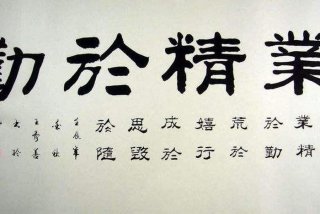 業精於勤
業精
於勤
荒於
嬉行
成於
思毀
於隨